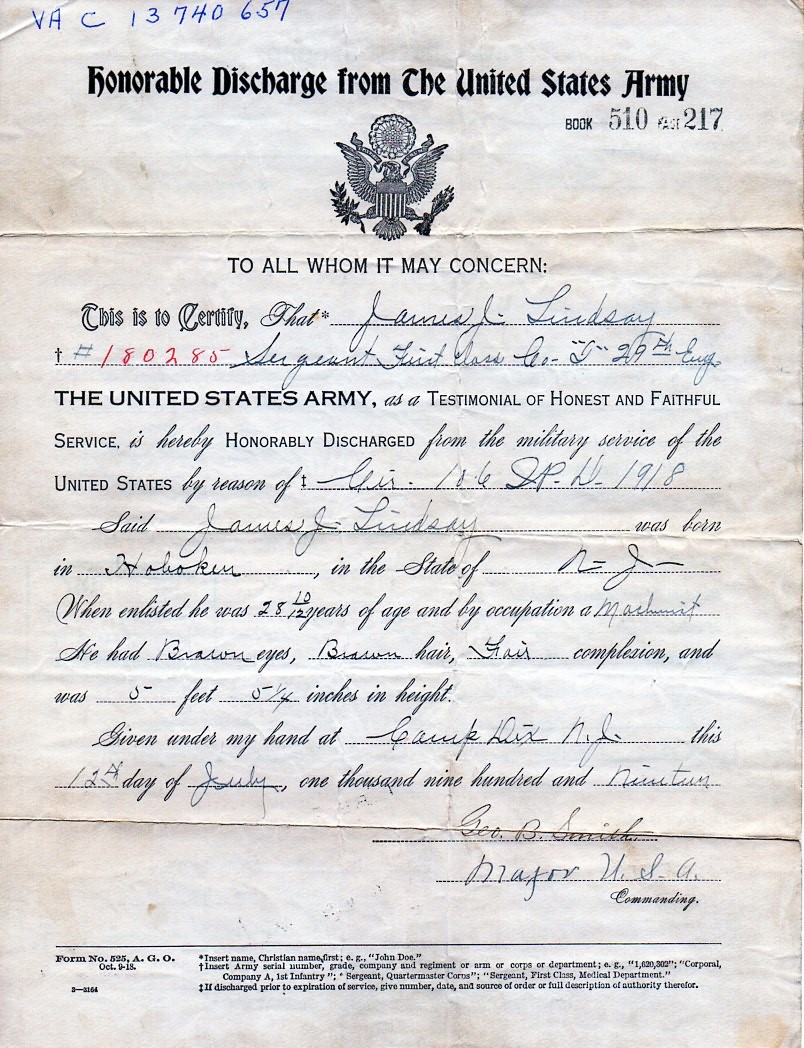 VA C 13 740 657
Honorable Discharge from The United States Army
BOOK 510 PAGE 217
TO ALL WHOM IT MAY CONCERN:
This is to Certify, That* James J. Lindsay
† # 180285 Sergeant First Class Co- 29th Eng.
THE UNITED STATES ARMY, as a TESTIMONIAL OF HONEST AND FAITHFUL
SERVICE, is hereby HONORABLY DISCHARGED from the military service of the
UNITED STATES by reason of ‡ Cir. 106 W.D. 1918
Said James J. Lindsay was born
in Hoboken, in the State of N- J-
When enlisted he was 28 10/12 years of age and by occupation a Machinist
He had Brown eyes, Brown hair, Fair complexion, and
was 5 feet 5 1/4 inches in height.
Given under my hand at Camp Dix N.J. this
12th day of July, one thousand nine hundred and Nineteen
Geo. B. Smith
Major U. S. A.
Commanding.
Form No. 525, A. G. O.
Oct. 9-18.
3—3164
*Insert name, Christian name, first; e. g., "John Doe."
†Insert Army serial number, grade, company and regiment or arm or corps or department; e. g., "1,620,302"; "Corporal,
Company A, 1st Infantry"; "Sergeant, Quartermaster Corps"; "Sergeant, First Class, Medical Department."
‡If discharged prior to expiration of service, give number, date, and source of order or full description of authority therefor.